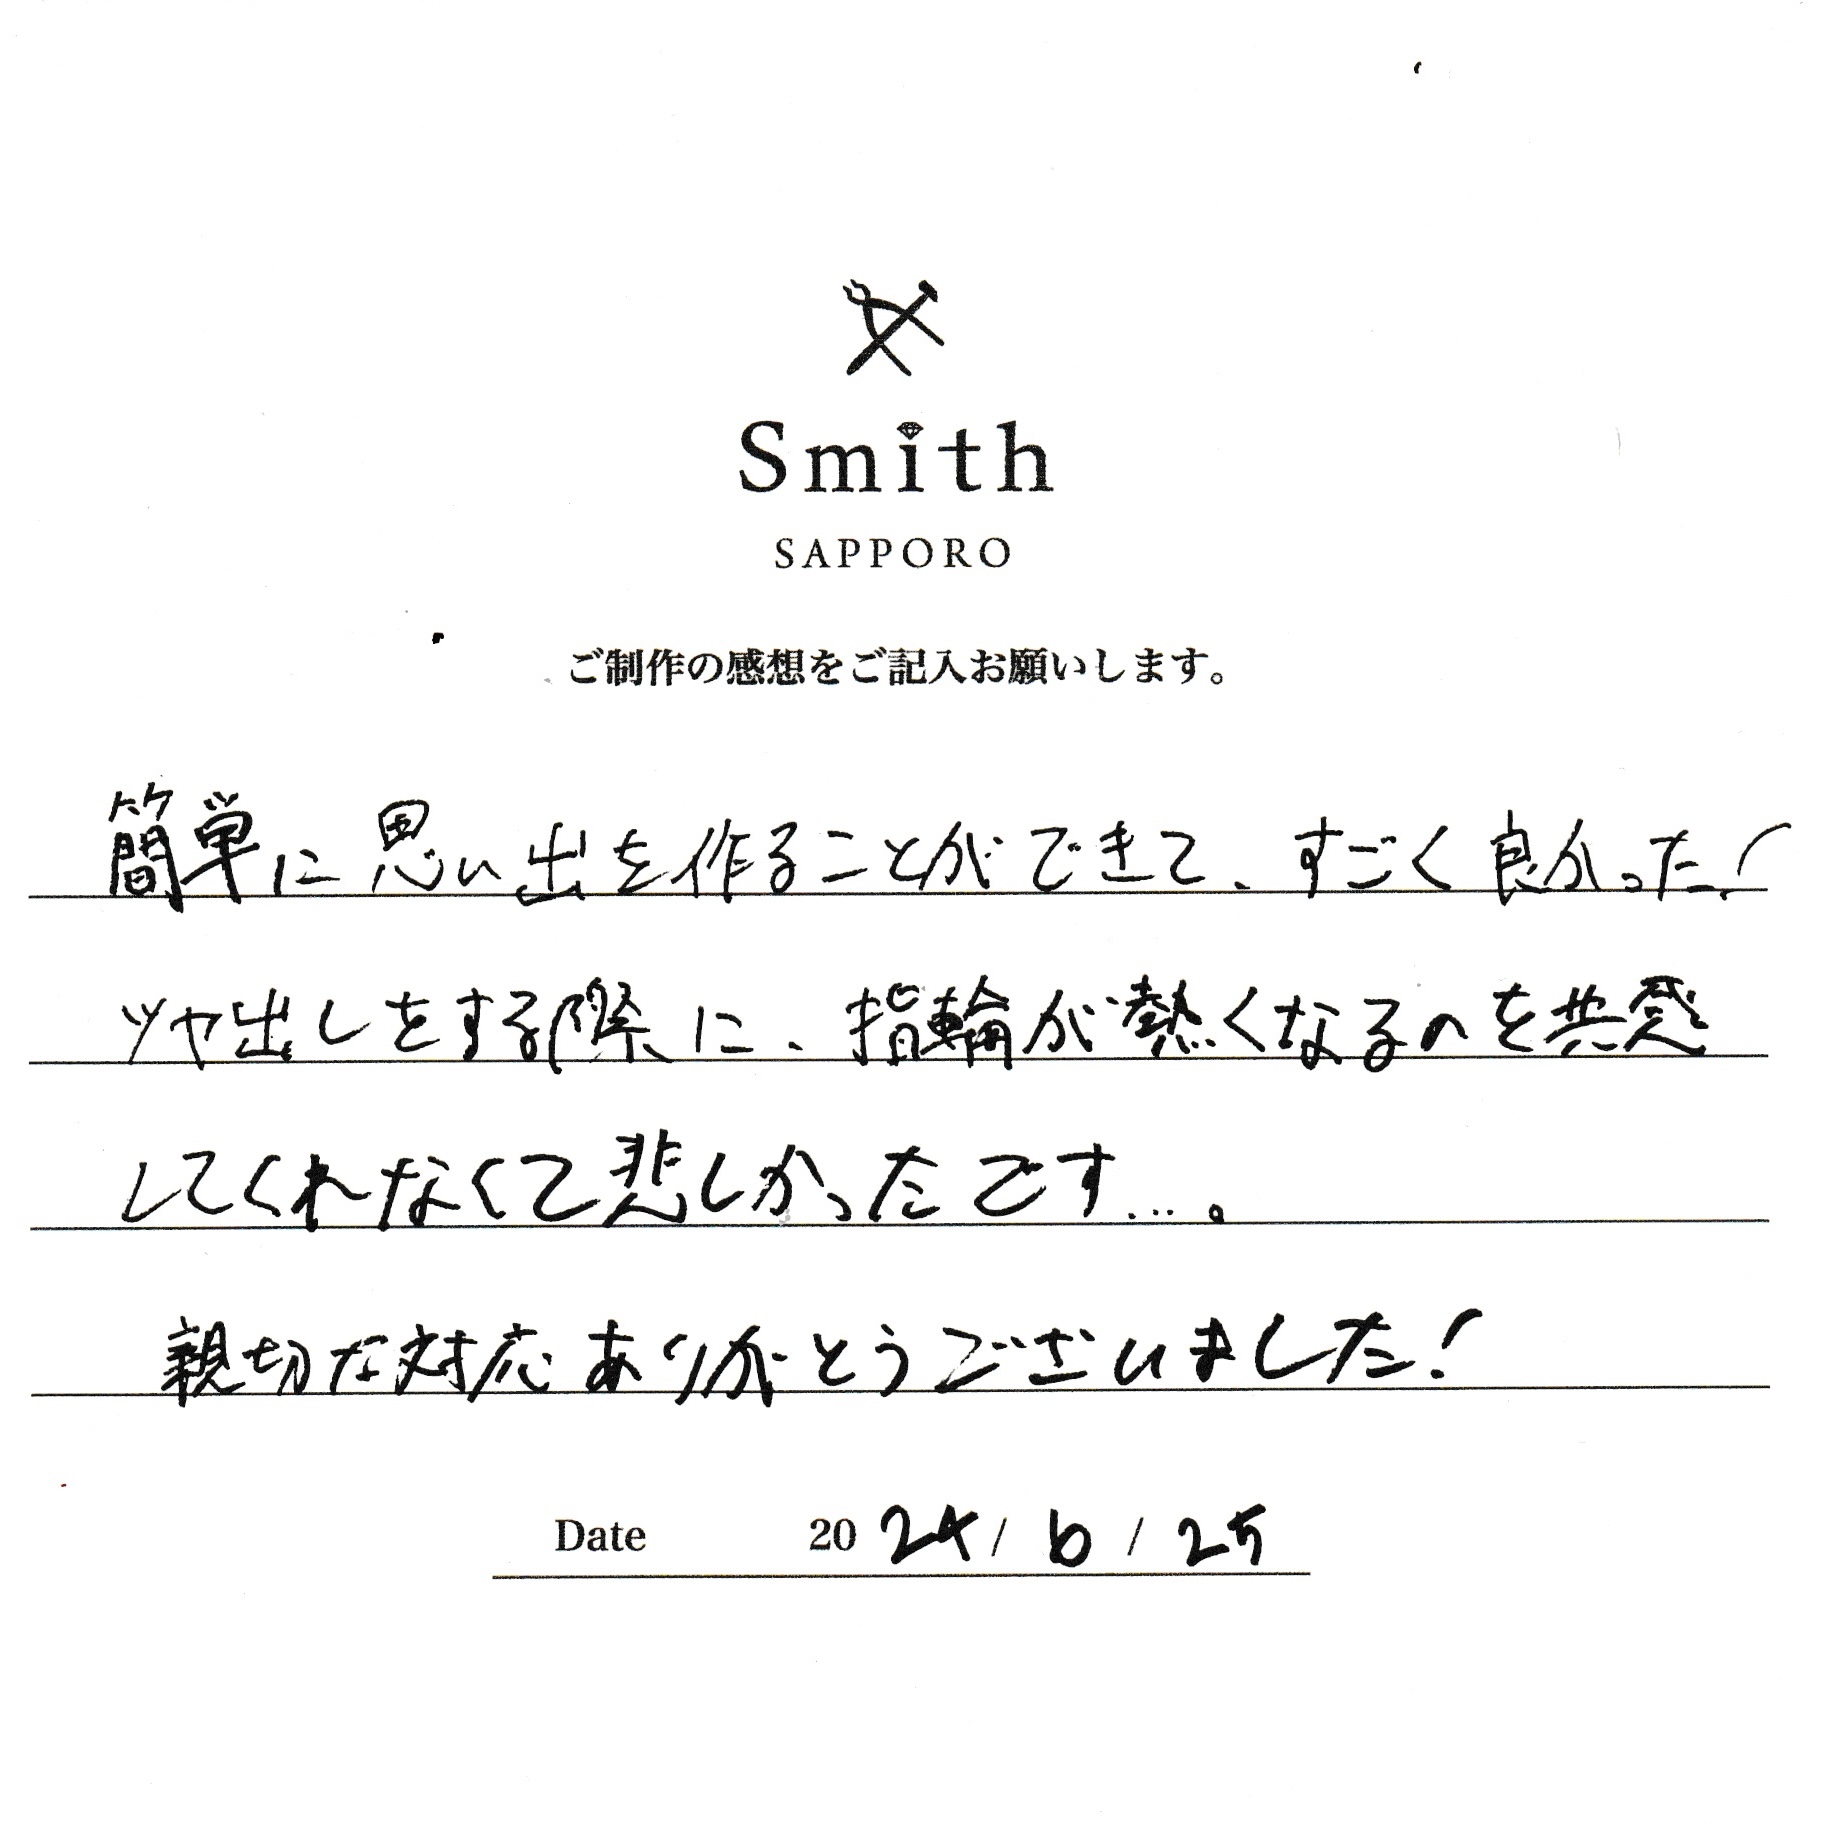 Smith
SAPPORO
ご制作の感想をご記入お願いします。
簡単に思い出を作ることができて、すごく良かった!
ツヤ出しをする際に、指輪が熱くなるのを共感
してくれなくて悲しかったです…。
親切な対応ありがとうございました!
Date 2024/6/25